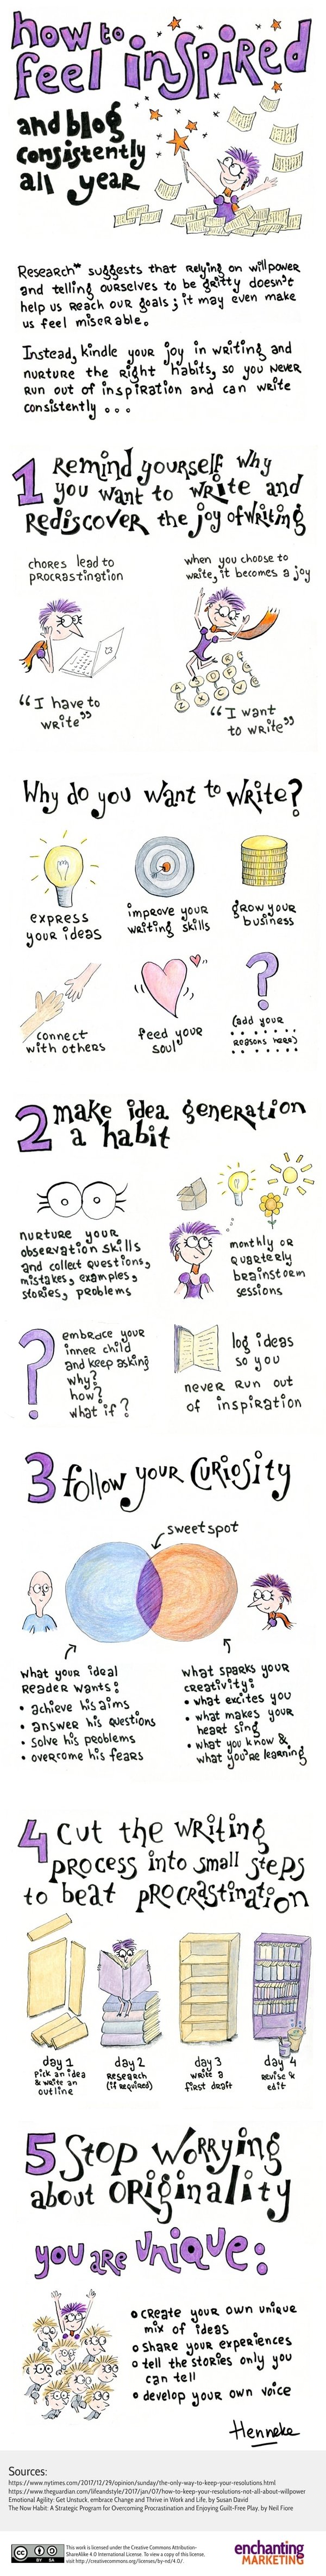 how to
feel inspired
and blog
consistently
all year
Research* suggests that relying on willpower
and telling ourselves to be gritty doesn't
help us reach our goals; it may even make
us feel miserable.
Instead, kindle your joy in writing and
nurture the right habits, so you never
run out of inspiration and can write
consistently ...
1 Remind yourself why
you want to write and
Rediscover the joy of writing
chores lead to
procrastination
when you choose to
write, it becomes a joy
"I have to
write"
"I want
to write"
Why do you want to write?
express
your ideas
improve your
writing skills
grow your
business
connect
with others
feed your
soul
(add your
reasons here)
2 make idea generation
a habit
nurture your
observation skills
and collect questions,
mistakes, examples,
stories, problems
monthly or
quarterly
brainstorm
sessions
embrace your
inner child
and keep asking
why?
how?
what if?
log ideas
so you
never run out
of inspiration
3 follow your curiosity
sweet spot
what your ideal
reader wants:
• achieve his aims
• answer his questions
• solve his problems
• overcome his fears
what sparks your
creativity:
• what excites you
• what makes your
heart sing
• what you know &
what you're learning
4 Cut the writing
process into small steps
to beat procrastination
day 1
Pick an idea
& write an
outline
day 2
Research
(if required)
day 3
write a
first draft
day 4
Revise &
edit
5 Stop worrying
about originality
you are unique:
• create your own unique
mix of ideas
• share your experiences
• tell the stories only you
can tell
• develop your own voice
Henneke
Sources:
https://www.nytimes.com/2017/12/29/opinion/sunday/the-only-way-to-keep-your-resolutions.html
https://www.theguardian.com/lifeandstyle/2017/jan/07/how-to-keep-your-resolutions-not-all-about-willpower
Emotional Agility: Get Unstuck, embrace Change and Thrive in Work and Life, by Susan David
The Now Habit: A Strategic Program for Overcoming Procrastination and Enjoying Guilt-Free Play, by Neil Fiore
This work is licensed under the Creative Commons Attribution-
ShareAlike 4.0 International License. To view a copy of this license,
visit http://creativecommons.org/licenses/by-nd/4.0/.
enchanting
MARKETING